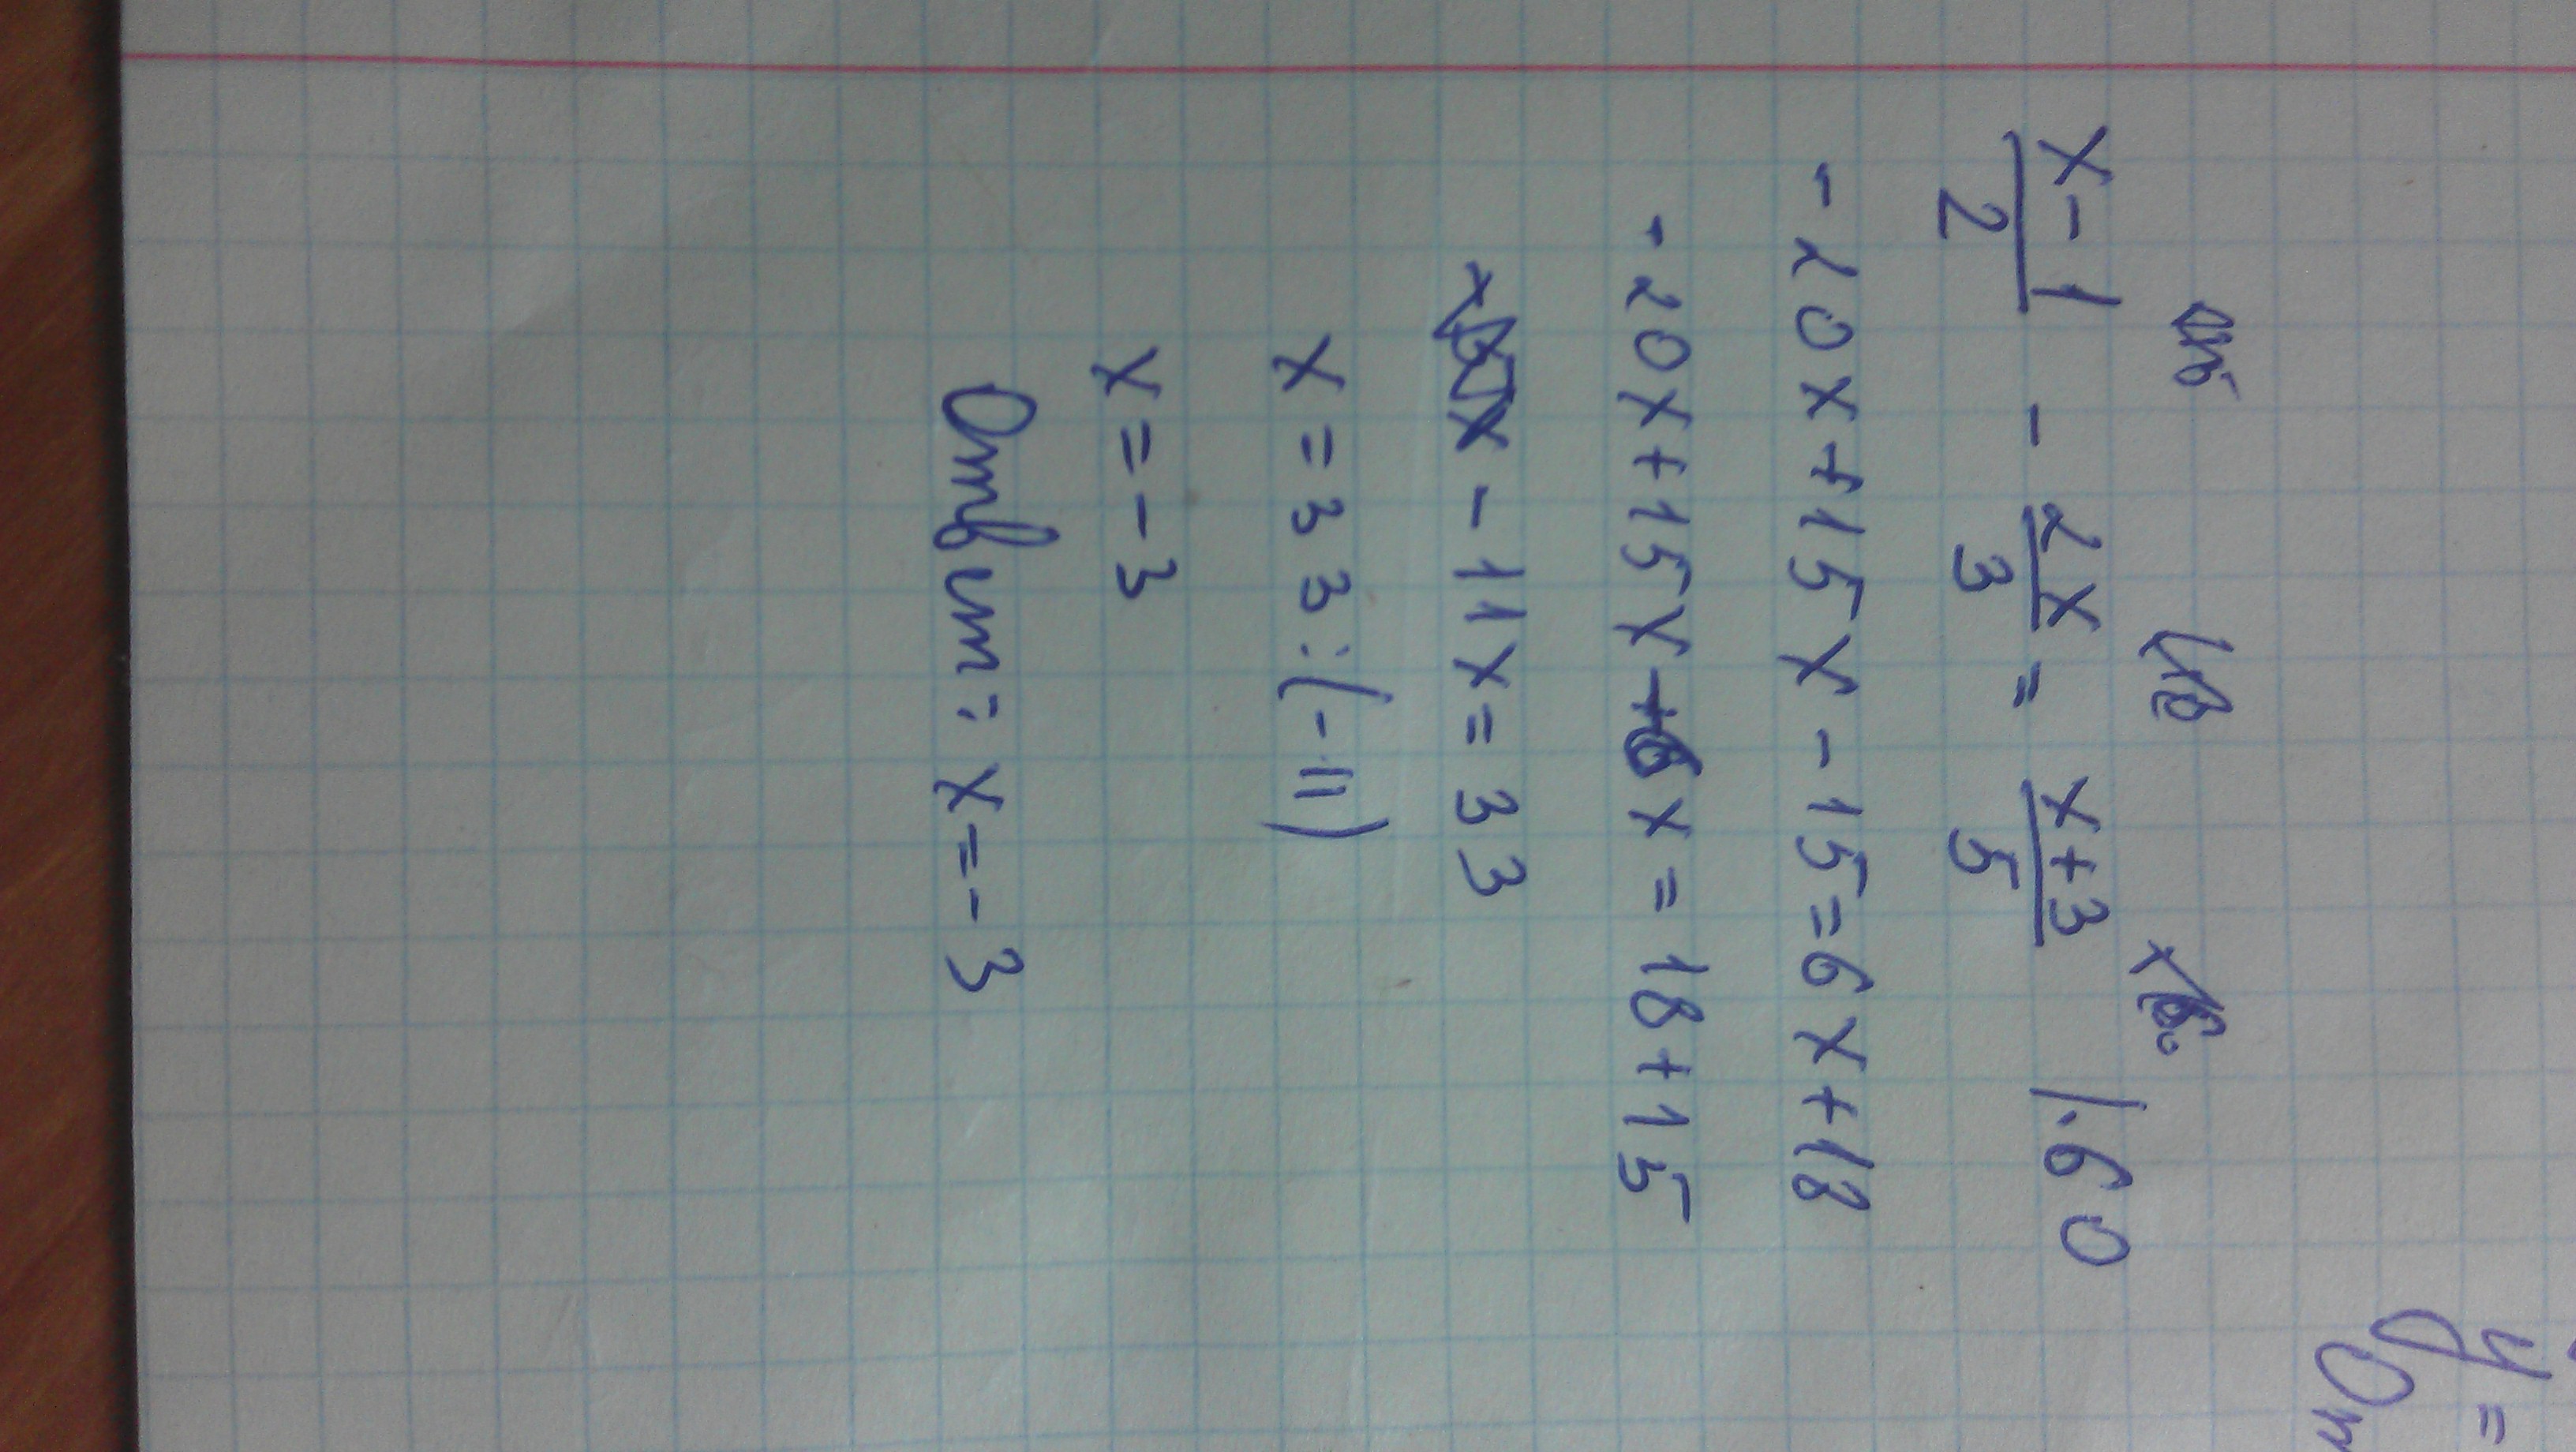 x-1/2 - 2x/3 = x+3/5 |·60
-20x+15x-15=6x+18
-20x+15x+6x=18+15
-11x=33
x=33:(-11)
x=-3
Ответ: x=-3
y=
От